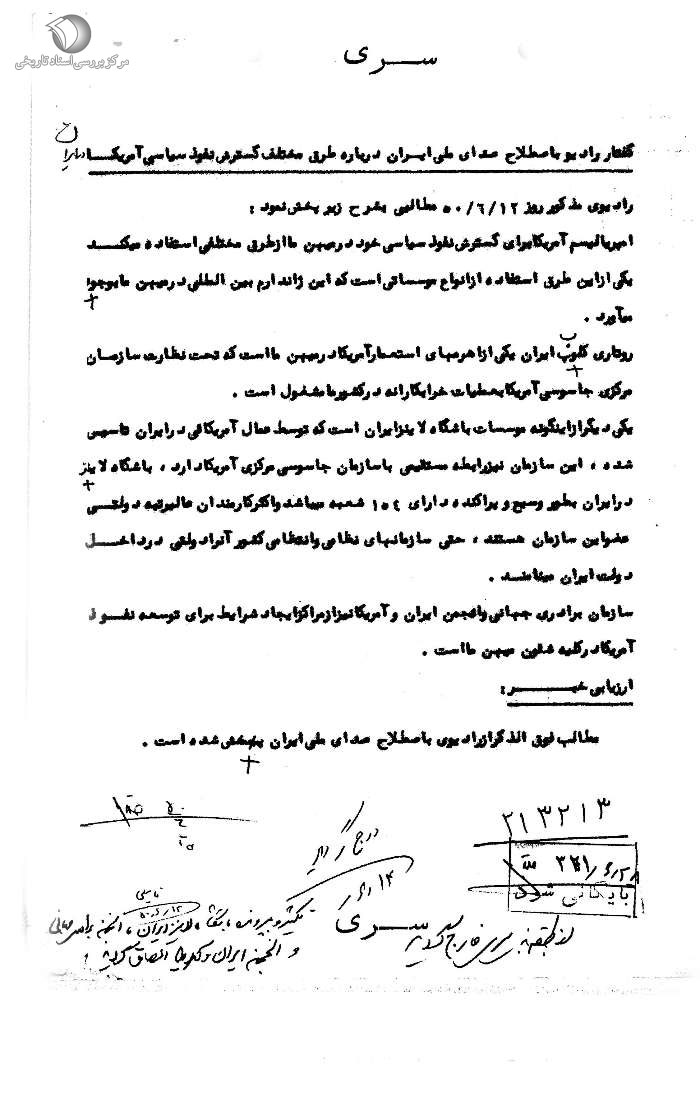 مرکز بررسی اسناد تاریخی
سری
گفتار رادیو باصطلاح صدای ملی ایران درباره طرق مختلف گسترش نفوذ سیاسی آمریکا در ایران
رادیوی مذکور روز ۵۰/۶/۱۲ مطالبی بشرح زیر پخش نمود :
امپریالیسم آمریکا برای گسترش نفوذ سیاسی خود در میهن ما از طرق مختلفی استفاده میکند
یکی از این طرق استفاده از انواع موسساتی است که این ژاندارم بین المللی در میهن ما بوجود
میآورد .
روتاری کلوب ایران یکی از اهرمهای استعمار آمریکا در میهن ما است که تحت نظارت سازمان
مرکزی جاسوسی آمریکا بعملیات خرابکارانه در کشور ما مشغول است .
یکی دیگر از اینگونه موسسات باشگاه لاینز ایران است که توسط عمال آمریکائی در ایران تاسیس
شده ، این سازمان نیز رابطه مستقیمی با سازمان جاسوسی مرکزی آمریکا دارد ، باشگاه لاینز
در ایران بطور وسیع و پراکنده دارای ۱۵۴ شعبه میباشد و اکثر کارمندان عالیرتبه دولتی
عضو این سازمان هستند ، حتی سازمانهای نظامی و انتظامی کشور آنرا دولتی در داخل
دولت ایران مینامند .
سازمان برادری جهانی و انجمن ایران و آمریکا نیز از مراکز ایجاد شرایط برای توسعه نفوذ
آمریکا در کلیه شئون میهن ما است .
ارزیابی خبر :
مطالب فوق الذکر از رادیوی باصطلاح صدای ملی ایران پخش شده است .
درج گردید
۲۱۳۲۱۳
بایگانی شود
سری
از طبقه‌بندی سری خارج گردید
و انجمن ایران و آمریکا الصاق گردید